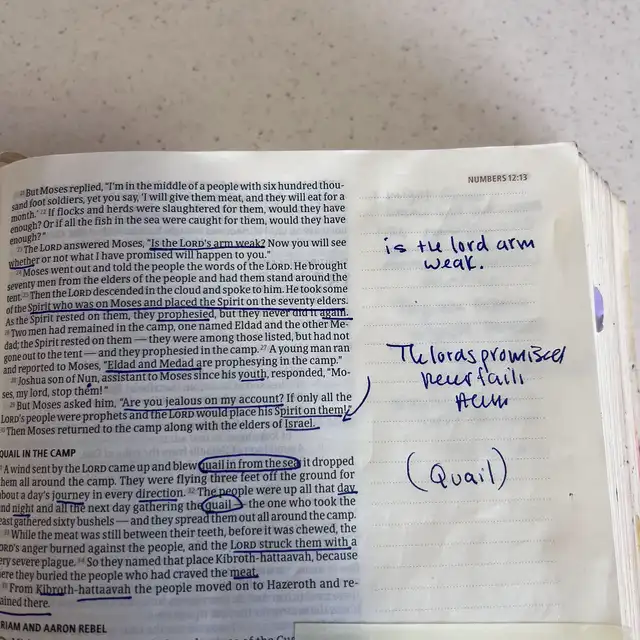 NUMBERS 12:13
21 But Moses replied, "I'm in the middle of a people with six hundred thou-
sand foot soldiers, yet you say, 'I will give them meat, and they will eat for a
month.' 22 If flocks and herds were slaughtered for them, would they have
enough? Or if all the fish in the sea were caught for them, would they have
enough?"
23 The LORD answered Moses, "Is the LORD's arm weak? Now you will see
whether or not what I have promised will happen to you."
24 Moses went out and told the people the words of the LORD. He brought
seventy men from the elders of the people and had them stand around the
tent. 25 Then the LORD descended in the cloud and spoke to him. He took some
of the Spirit who was on Moses and placed the Spirit on the seventy elders.
As the Spirit rested on them, they prophesied, but they never did it again.
26 Two men had remained in the camp, one named Eldad and the other Me-
dad; the Spirit rested on them — they were among those listed, but had not
gone out to the tent — and they prophesied in the camp. 27 A young man ran
and reported to Moses, "Eldad and Medad are prophesying in the camp."
28 Joshua son of Nun, assistant to Moses since his youth, responded, "Mo-
ses, my lord, stop them!"
29 But Moses asked him, "Are you jealous on my account? If only all the
LORD's people were prophets and the LORD would place his Spirit on them!"
30 Then Moses returned to the camp along with the elders of Israel.
QUAIL IN THE CAMP
A wind sent by the LORD came up and blew quail in from the sea; it dropped
them all around the camp. They were flying three feet off the ground for
about a day's journey in every direction. 32 The people were up all that day
and night and all the next day gathering the quail — the one who took the
least gathered sixty bushels — and they spread them out all around the camp.
33 While the meat was still between their teeth, before it was chewed, the
LORD's anger burned against the people, and the LORD struck them with a
very severe plague. 34 So they named that place Kibroth-hattaavah, because
there they buried the people who had craved the meat.
35 From Kibroth-hattaavah the people moved on to Hazeroth and re-
mained there.
RIAM AND AARON REBEL
is the lord arm
weak.
The lords promises
never fails
(Quail)